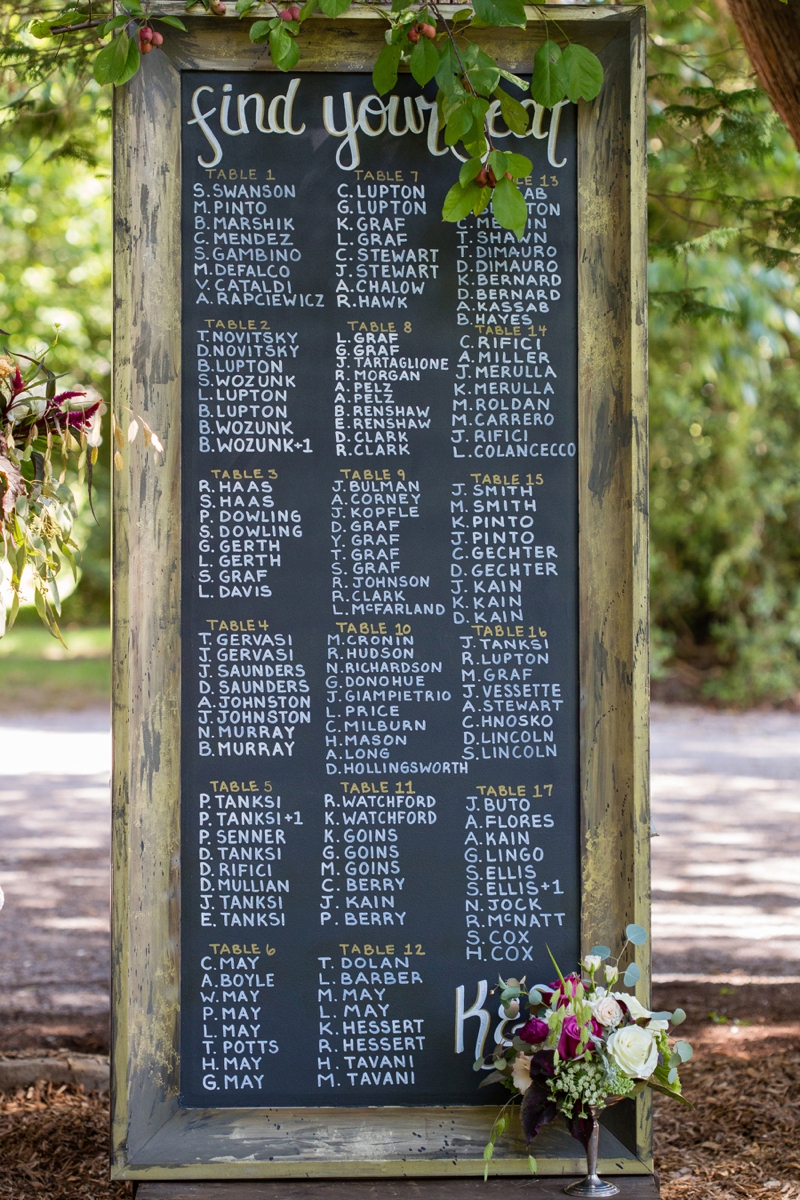 find your
TABLE 1
S. SWANSON
M. PINTO
B. MARSHIK
C. MENDEZ
S. GAMBINO
M. DEFALCO
V. CATALDI
A. RAPCIEWICZ
TABLE 2
T. NOVITSKY
D. NOVITSKY
B. LUPTON
S. WOZUNK
L. LUPTON
B. LUPTON
B. WOZUNK
B. WOZUNK+1
TABLE 3
R. HAAS
S. HAAS
P. DOWLING
S. DOWLING
G. GERTH
L. GERTH
S. GRAF
L. DAVIS
TABLE 4
T. GERVASI
J. GERVASI
J. SAUNDERS
D. SAUNDERS
A. JOHNSTON
J. JOHNSTON
N. MURRAY
B. MURRAY
TABLE 5
P. TANKSI
P. TANKSI+1
P. SENNER
D. TANKSI
D. RIFICI
D. MULLIAN
J. TANKSI
E. TANKSI
TABLE 6
C. MAY
A. BOYLE
W. MAY
P. MAY
L. MAY
T. POTTS
H. MAY
G. MAY
TABLE 7
C. LUPTON
G. LUPTON
K. GRAF
L. GRAF
C. STEWART
J. STEWART
A. CHALOW
R. HAWK
TABLE 8
L. GRAF
G. GRAF
J. TARTAGLIONE
R. MORGAN
A. PELZ
A. PELZ
B. RENSHAW
E. RENSHAW
D. CLARK
R. CLARK
TABLE 9
J. BULMAN
A. CORNEY
J. KOPFLE
D. GRAF
Y. GRAF
T. GRAF
S. GRAF
R. JOHNSON
R. CLARK
L. McFARLAND
TABLE 10
M. CRONIN
R. HUDSON
N. RICHARDSON
G. DONOHUE
J. GIAMPIETRIO
L. PRICE
C. MILBURN
H. MASON
A. LONG
D. HOLLINGSWORTH
TABLE 11
R. WATCHFORD
K. WATCHFORD
K. GOINS
G. GOINS
M. GOINS
C. BERRY
J. KAIN
P. BERRY
TABLE 12
T. DOLAN
L. BARBER
M. MAY
L. MAY
K. HESSERT
R. HESSERT
H. TAVANI
M. TAVANI
13
T. SHAWN
T. DIMAURO
D. DIMAURO
K. BERNARD
D. BERNARD
A. KASSAB
B. HAYES
TABLE 14
C. RIFICI
A. MILLER
J. MERULLA
K. MERULLA
M. ROLDAN
M. CARRERO
J. RIFICI
L. COLANCECCO
TABLE 15
J. SMITH
M. SMITH
K. PINTO
J. PINTO
C. GECHTER
D. GECHTER
J. KAIN
K. KAIN
D. KAIN
TABLE 16
J. TANKSI
R. LUPTON
M. GRAF
J. VESSETTE
A. STEWART
C. HNOSKO
D. LINCOLN
S. LINCOLN
TABLE 17
J. BUTO
A. FLORES
A. KAIN
G. LINGO
S. ELLIS
S. ELLIS+1
N. JOCK
R. McNATT
S. COX
H. COX